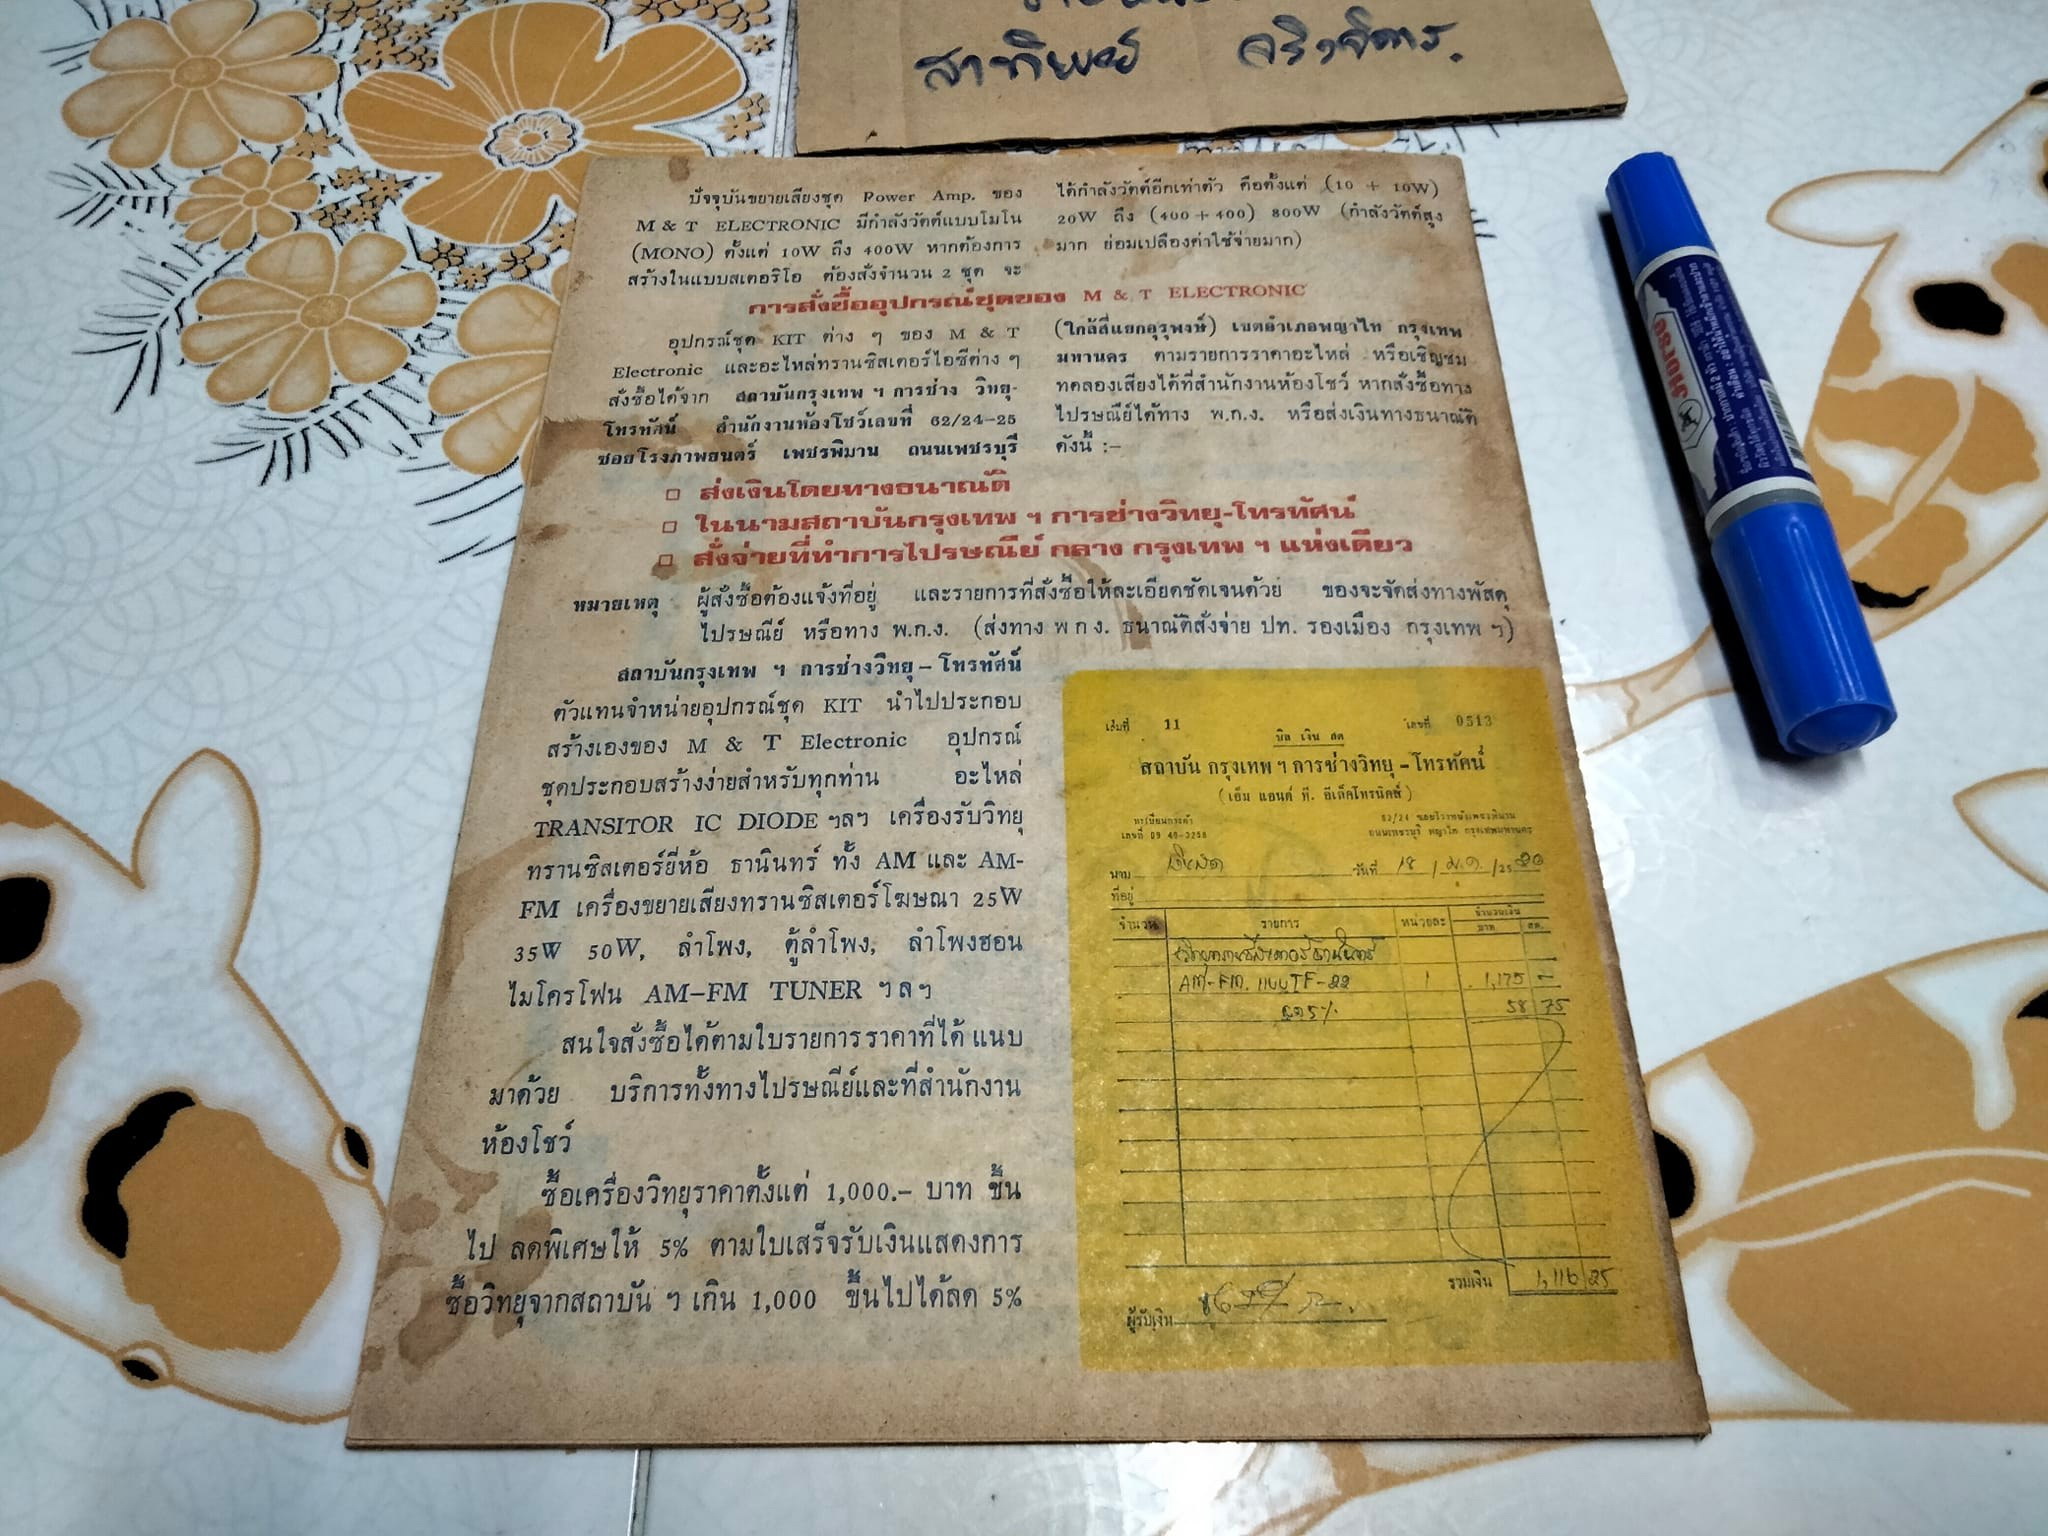 สาทิพย์
ปัจจุบันขยายเสียงชุด Power Amp. ของ
M & T ELECTRONIC มีกำลังวัตต์แบบโมโน
(MONO) ตั้งแต่ 10W ถึง 400W หากต้องการ
สร้างในแบบสเตอริโอ ต้องสั่งจำนวน 2 ชุด จะ
ได้กำลังวัตต์อีกเท่าตัว คือตั้งแต่ (10 + 10W)
20W ถึง (400 + 400) 800W (กำลังวัตต์สูง
มาก ย่อมเปลืองค่าใช้จ่ายมาก)
การสั่งซื้ออุปกรณ์ชุดของ M & T ELECTRONIC
อุปกรณ์ชุด KIT ต่าง ๆ ของ M & T
Electronic และอะไหล่ทรานซิสเตอร์ไอซีต่าง ๆ
สั่งซื้อได้จาก สถาบันกรุงเทพ ฯ การช่าง วิทยุ-
โทรทัศน์ สำนักงานห้องโชว์เลขที่ 62/24-25
ซอยโรงภาพยนตร์ เพชรพิมาน ถนนเพชรบุรี
(ใกล้สี่แยกอุรุพงษ์) เขตอำเภอพญาไท กรุงเทพ
มหานคร ตามรายการราคาอะไหล่ หรือเชิญชม
ทดลองเสียงได้ที่สำนักงานห้องโชว์ หากสั่งซื้อทาง
ไปรษณีย์ได้ทาง พ.ก.ง. หรือส่งเงินทางธนาณัติ
ดังนี้ :-
□ ส่งเงินโดยทางธนาณัติ
□ ในนามสถาบันกรุงเทพ ฯ การช่างวิทยุ-โทรทัศน์
□ สั่งจ่ายที่ทำการไปรษณีย์ กลาง กรุงเทพ ฯ แห่งเดียว
หมายเหตุ ผู้สั่งซื้อต้องแจ้งที่อยู่ และรายการที่สั่งซื้อให้ละเอียดชัดเจนด้วย ของจะจัดส่งทางพัสดุ
ไปรษณีย์ หรือทาง พ.ก.ง. (ส่งทาง พ ก ง. ธนาณัติสั่งจ่าย ปท. รองเมือง กรุงเทพ ฯ)
สถาบันกรุงเทพ ฯ การช่างวิทยุ - โทรทัศน์
ตัวแทนจำหน่ายอุปกรณ์ชุด KIT นำไปประกอบ
สร้างเองของ M & T Electronic อุปกรณ์
ชุดประกอบสร้างง่ายสำหรับทุกท่าน อะไหล่
TRANSITOR IC DIODE ฯลฯ เครื่องรับวิทยุ
ทรานซิสเตอร์ยี่ห้อ ธานินทร์ ทั้ง AM และ AM-
FM เครื่องขยายเสียงทรานซิสเตอร์โฆษณา 25W
35W 50W, ลำโพง, ตู้ลำโพง, ลำโพงฮอน
ไมโครโฟน AM-FM TUNER ฯลฯ
สนใจสั่งซื้อได้ตามใบรายการราคาที่ได้ แนบ
มาด้วย บริการทั้งทางไปรษณีย์และที่สำนักงาน
ห้องโชว์
ซื้อเครื่องวิทยุราคาตั้งแต่ 1,000.- บาท ขึ้น
ไป ลดพิเศษให้ 5% ตามใบเสร็จรับเงินแสดงการ
ซื้อวิทยุจากสถาบัน ฯ เกิน 1,000 ขึ้นไปได้ลด 5%
เล่มที่ 11 เลขที่ 0513
บิล เงิน สด
สถาบัน กรุงเทพ ฯ การช่างวิทยุ - โทรทัศน์
(เอ็ม แอนด์ ที. อีเล็คโทรนิคส์)
ทะเบียนการค้า
เลขที่ 09 46-3258
62/24 ซอยโรงหนังเพชรพิมาน
ถนนเพชรบุรี พญาไท กรุงเทพมหานคร
นาม วันที่ 18 / ม.ค. / 2520
ที่อยู่
จำนวน รายการ หน่วยละ จำนวนเงิน
บาท สต.
วิทยุทรานซิสเตอร์ธานินทร์
AM-FM. แบบTF-22 1 1,175 -
ลด5% 58 75
รวมเงิน 1,116 25
ผู้รับเงิน
ตราม้า
Horse